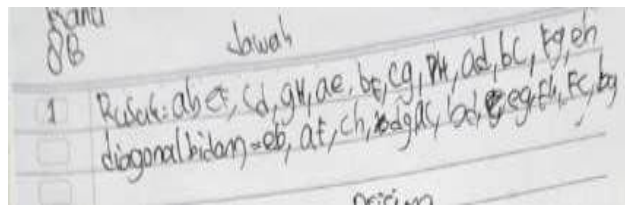 8B Jawab
1 Rusuk: ab ef, cd, gH, ae, bf, cg, DH, ad, bC, fg, eh
diagonal bidang = eb, af, ch, dg ac, bd, eg, fh, FC, bg